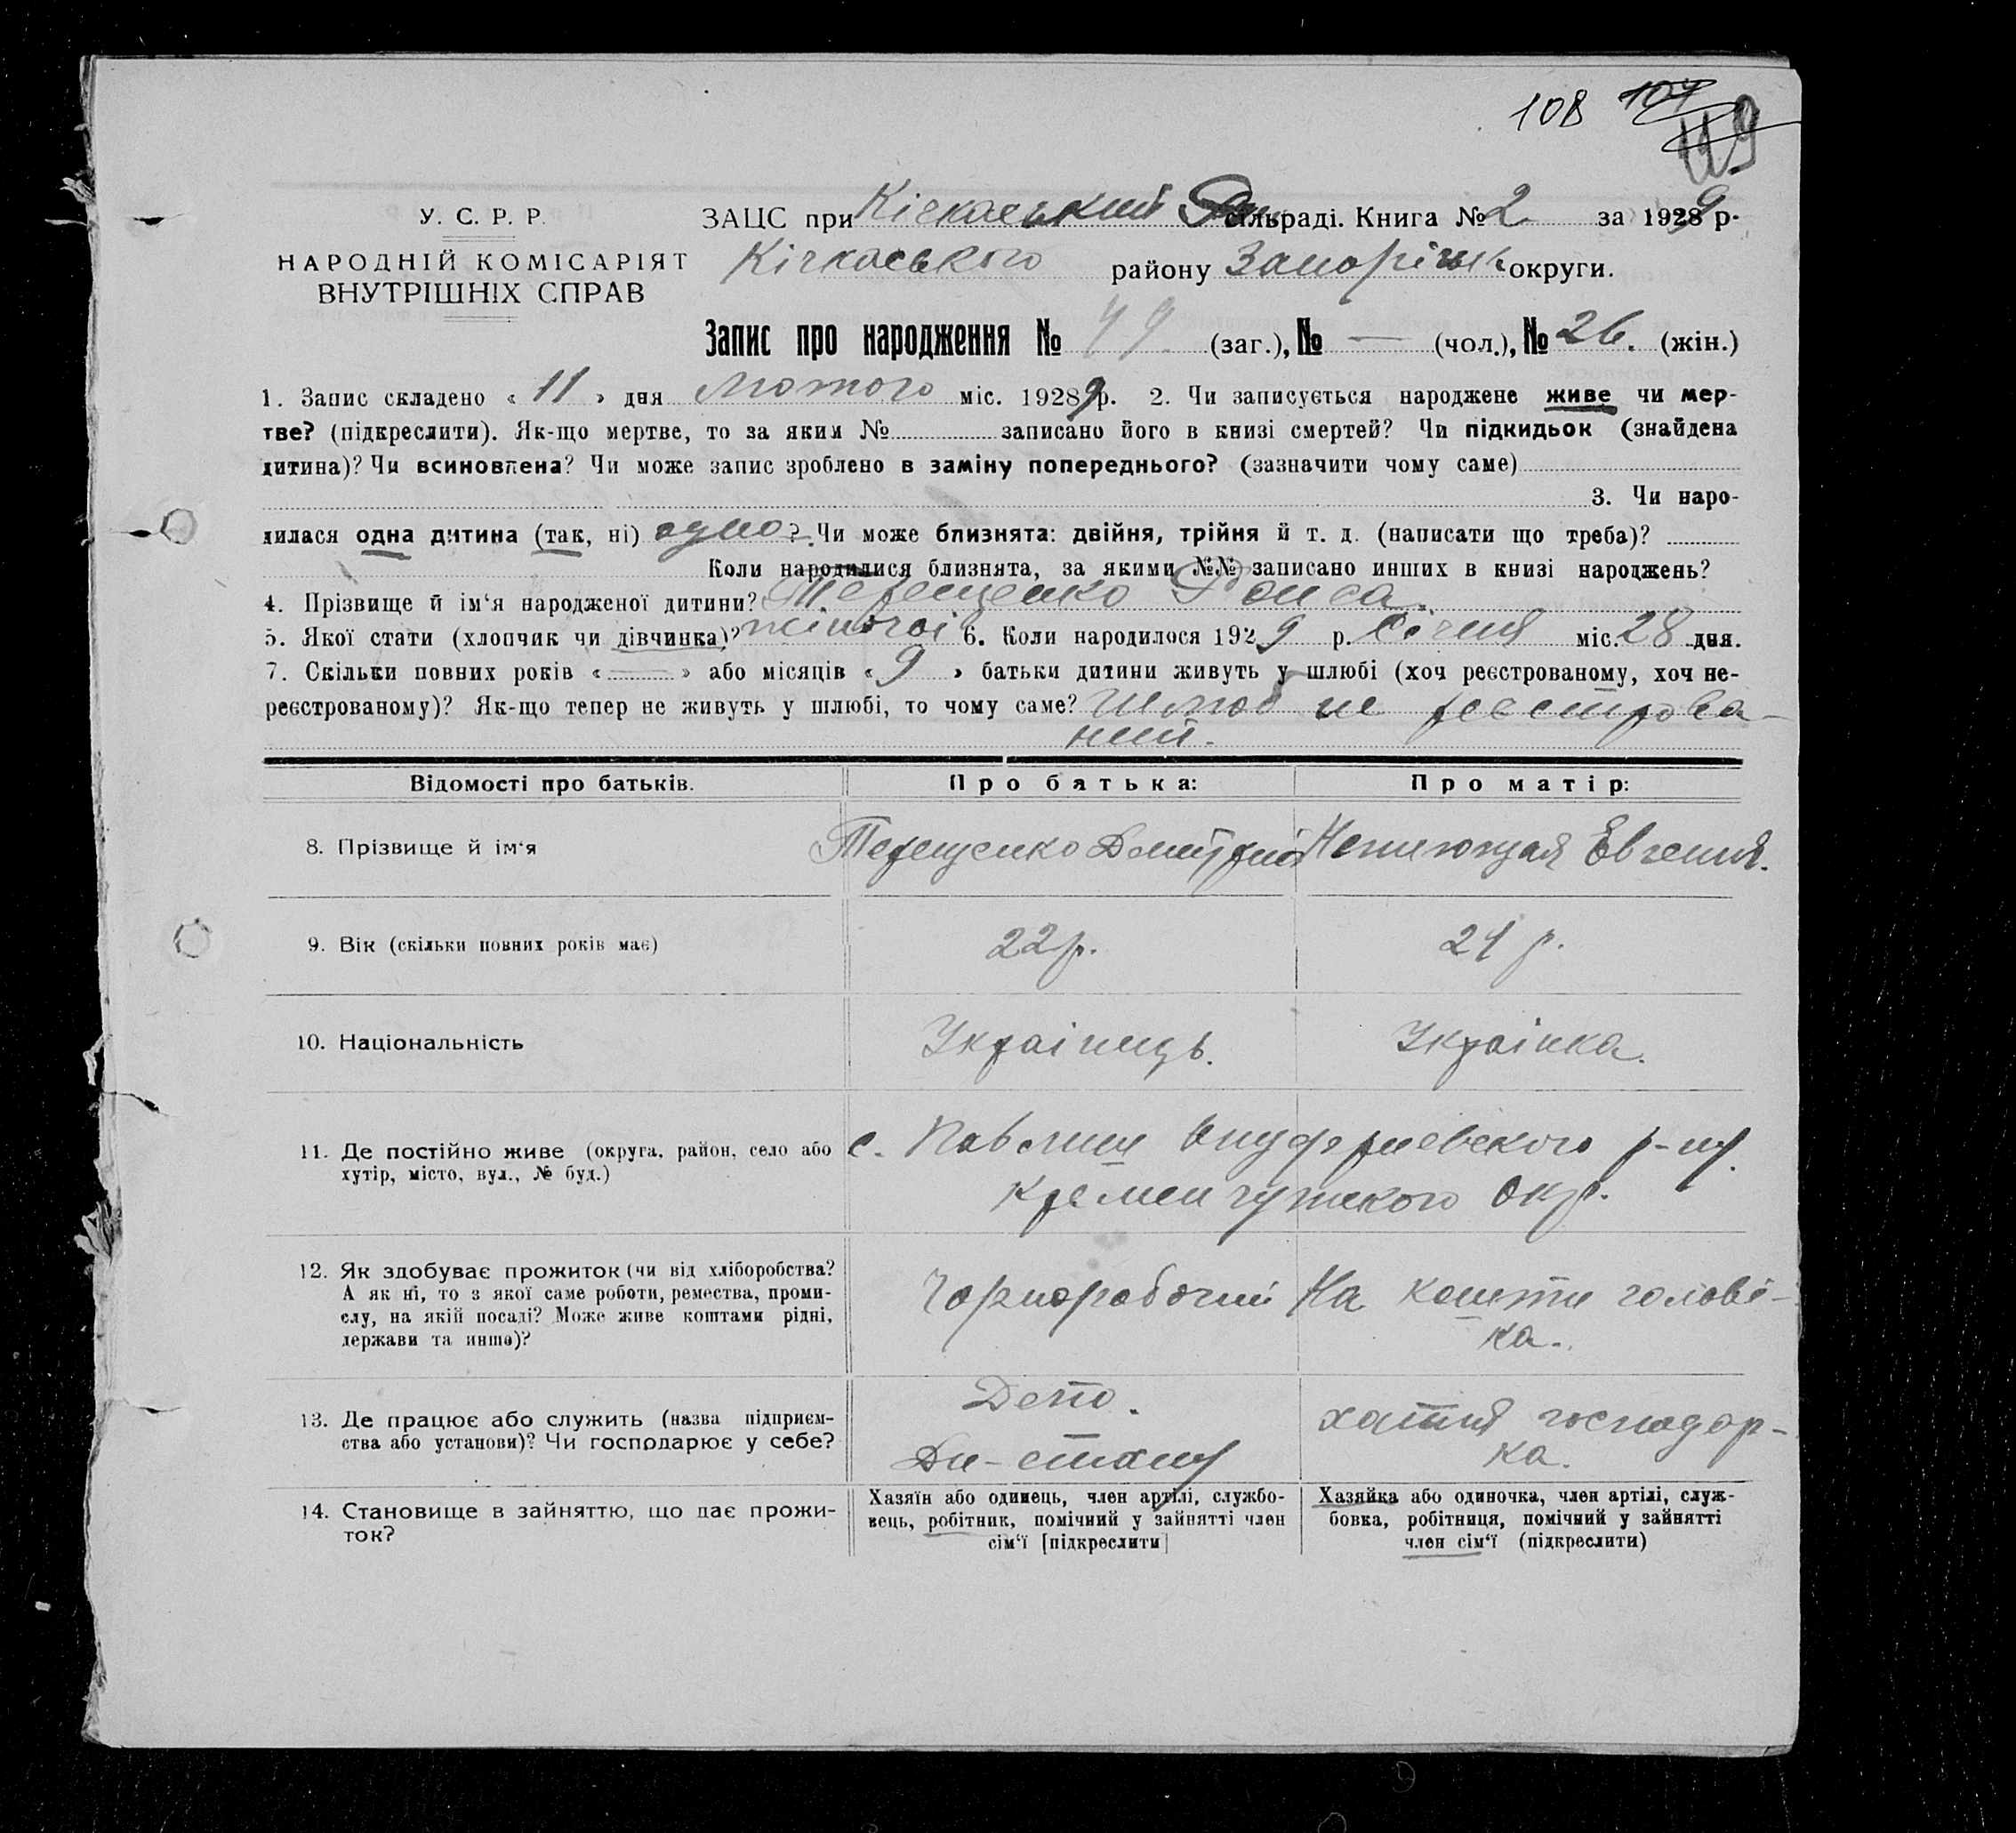 108 104
119
У. С. Р. Р.
НАРОДНІЙ КОМІСАРІЯТ
ВНУТРІШНІХ СПРАВ
ЗАЦС при Кічкаський сільраді. Книга № 2 за 1929 р.
Кічкаського району Запоріжськ округи.
Запис про народження № 49 (заг.), № — (чол.), № 26. (жін.)
1. Запис складено « 11 » дня Лютого міс. 1929 р. 2. Чи записується народжене живе чи мер-
тве? (підкреслити). Як-що мертве, то за яким № записано його в книзі смертей? Чи підкидьок (знайдена
дитина)? Чи всиновлена? Чи може запис зроблено в заміну попереднього? (зазначити чому саме)
3. Чи наро-
дилася одна дитина (так, ні) одно? Чи може близнята: двійня, трійня й т. д. (написати що треба)?
Коли народилися близнята, за якими №№ записано инших в книзі народжень?
4. Прізвище й ім‘я народженої дитини? Терещенко Раиса.
5. Якої стати (хлопчик чи дівчинка)? жіночоі 6. Коли народилося 1929 р. Січня міс. 28 дня.
7. Скільки повних років « — » або місяців « 9 » батьки дитини живуть у шлюбі (хоч реєстрованому, хоч не-
реєстрованому)? Як-що тепер не живуть у шлюбі, то чому саме? Шлюб не реєстрова-
ний.
Відомості про батьків. Про батька: Про матір:
8. Прізвище й ім‘я Терещенко Дмитрий Евгения.
9. Вік (скільки повних років має) 22 р. 21 р.
10. Національність Украінець. Украінка.
11. Де постійно живе (округа, район, село або
хутір, місто, вул., № буд.)
с. Павлиш Онуфриевского р-ну.
Кременчужского Окр.
12. Як здобуває прожиток (чи від хліборобства?
А як ні, то з якої саме роботи, ремества, проми-
слу, на якій посаді? Може живе коштами рідні,
держави та инше)?
Чорноробочий На кошти чолові-
ка.
13. Де працює або служить (назва підприєм-
ства або установи)? Чи господарює у себе?
Депо.
Дн-стану
хатня господар-
ка.
14. Становище в зайняттю, що дає прожи-
ток?
Хазяїн або одинець, член артілі, службо-
вець, робітник, помічний у зайнятті член
сім‘ї [підкреслити]
Хазяйка або одиночка, член артілі, служ-
бовка, робітниця, помічний у зайнятті
член сім‘ї (підкреслити)